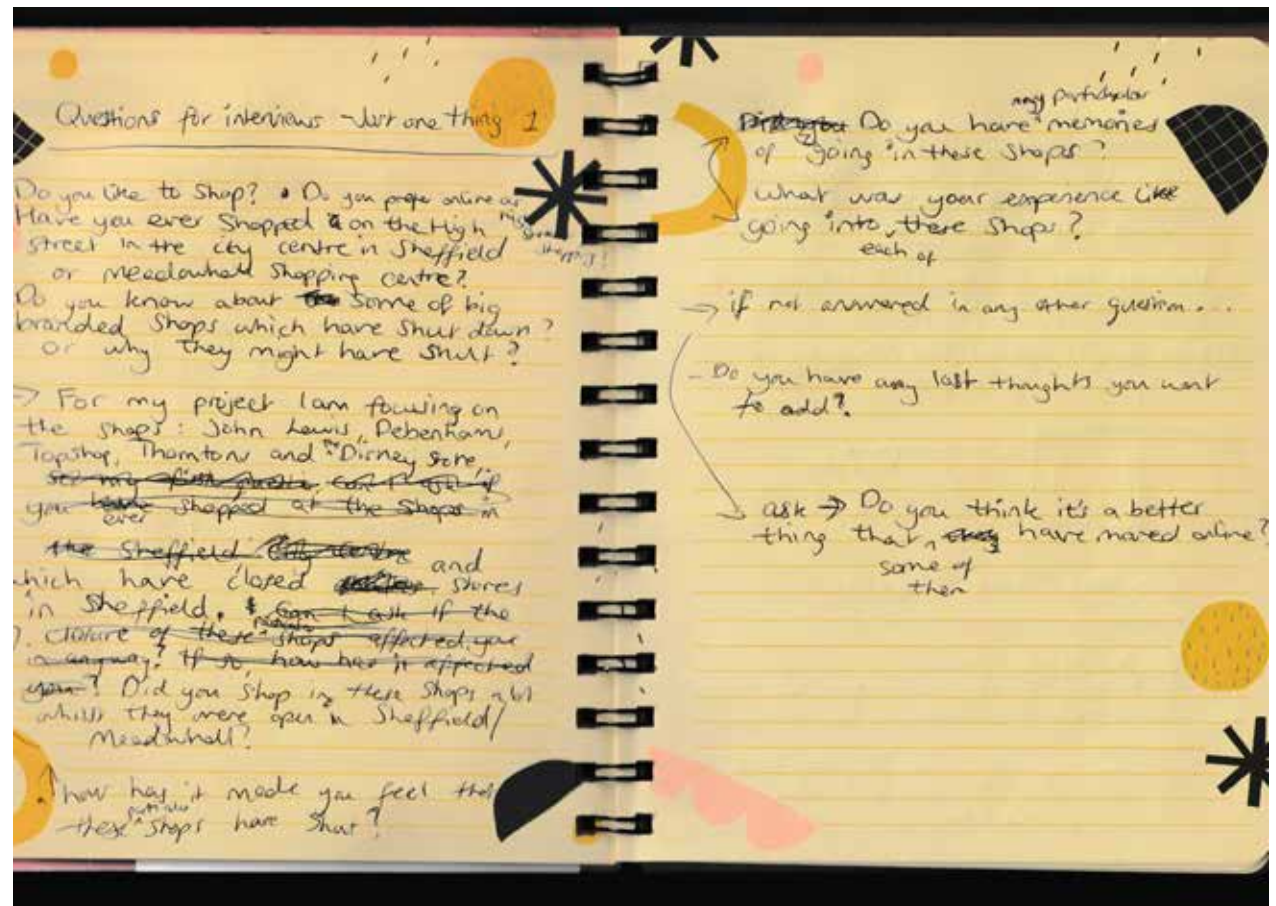 Questions for interviews - Just one thing 1
Do you like to shop? • Do you prefer online or
high street shopping?
Have you ever shopped on the High
street in the city centre in Sheffield
or meadowhall shopping centre?
Do you know about some of big
branded shops which have shut down?
or why they might have shut?
→ For my project I am focusing on
the shops: John Lewis, Debenhams,
Topshop, Thorntons and the Disney store,
so my first can I ask if
you have ever shopped at the shops in
the Sheffield city centre and
which have closed stores
in Sheffield. Can I ask if the
closure of these shops affected you
in anyway? If so, how has it affected
you? Did you shop in these shops a lot
whilst they were open in Sheffield/
Meadowhall?
how has it made you feel that
these particular shops have shut?
any particular
Did you Do you have ^ memories
of going in these shops?
What was your experience like
going into ^ these shops?
each of
→ if not answered in any other question...
- Do you have any last thoughts you want
to add?
ask → Do you think it's a better
thing that ^ they have moved online?
some of
them